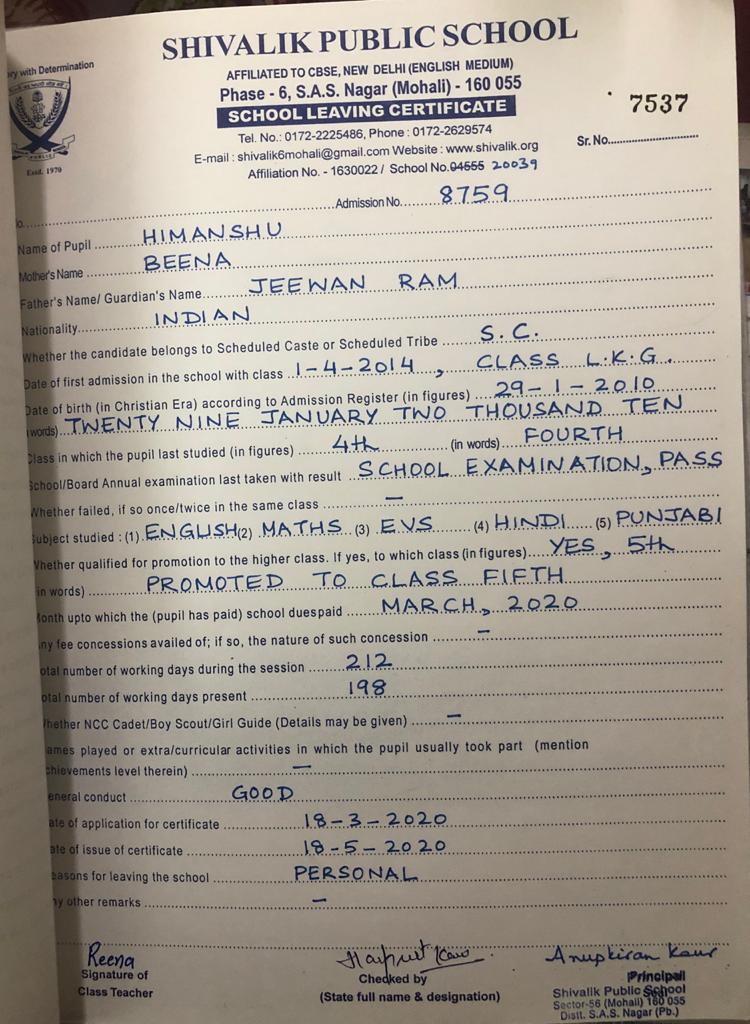 SHIVALIK PUBLIC SCHOOL
ry with Determination
AFFILIATED TO CBSE, NEW DELHI (ENGLISH MEDIUM)
Phase - 6, S.A.S. Nagar (Mohali) - 160 055
SCHOOL LEAVING CERTIFICATE
7537
Tel. No.: 0172-2225486, Phone : 0172-2629574
Sr. No.
E-mail : shivalik6mohali@gmail.com Website : www.shivalik.org
Affiliation No. - 1630022 / School No. 04555 20039
PUBLIC
Estd. 1970
Admission No. 8759
o.
Name of Pupil HIMANSHU
Mother's Name BEENA
Father's Name/ Guardian's Name JEEWAN RAM
Nationality INDIAN
Whether the candidate belongs to Scheduled Caste or Scheduled Tribe S.C.
Date of first admission in the school with class 1-4-2014, CLASS L.K.G.
Date of birth (in Christian Era) according to Admission Register (in figures) 29-1-2010
words) TWENTY NINE JANUARY TWO THOUSAND TEN
Class in which the pupil last studied (in figures) 4th (in words) FOURTH
School/Board Annual examination last taken with result SCHOOL EXAMINATION, PASS
Whether failed, if so once/twice in the same class —
ubject studied : (1) ENGLISH (2) MATHS (3) EVS (4) HINDI (5) PUNJABI
Whether qualified for promotion to the higher class. If yes, to which class (in figures) YES, 5th
in words) PROMOTED TO CLASS FIFTH
onth upto which the (pupil has paid) school duespaid MARCH, 2020
ny fee concessions availed of; if so, the nature of such concession —
otal number of working days during the session 212
otal number of working days present 198
hether NCC Cadet/Boy Scout/Girl Guide (Details may be given) —
ames played or extra/curricular activities in which the pupil usually took part (mention
chievements level therein) —
eneral conduct GOOD
ate of application for certificate 18-3-2020
ate of issue of certificate 18-5-2020
easons for leaving the school PERSONAL
ny other remarks —
Reena
Harpreet Kaur
Anupkiran Kaur
Signature of
Class Teacher
Checked by
(State full name & designation)
Principal
Shivalik Public School
Sector-56 (Mohali) 160 055
Distt. S.A.S. Nagar (Pb.)